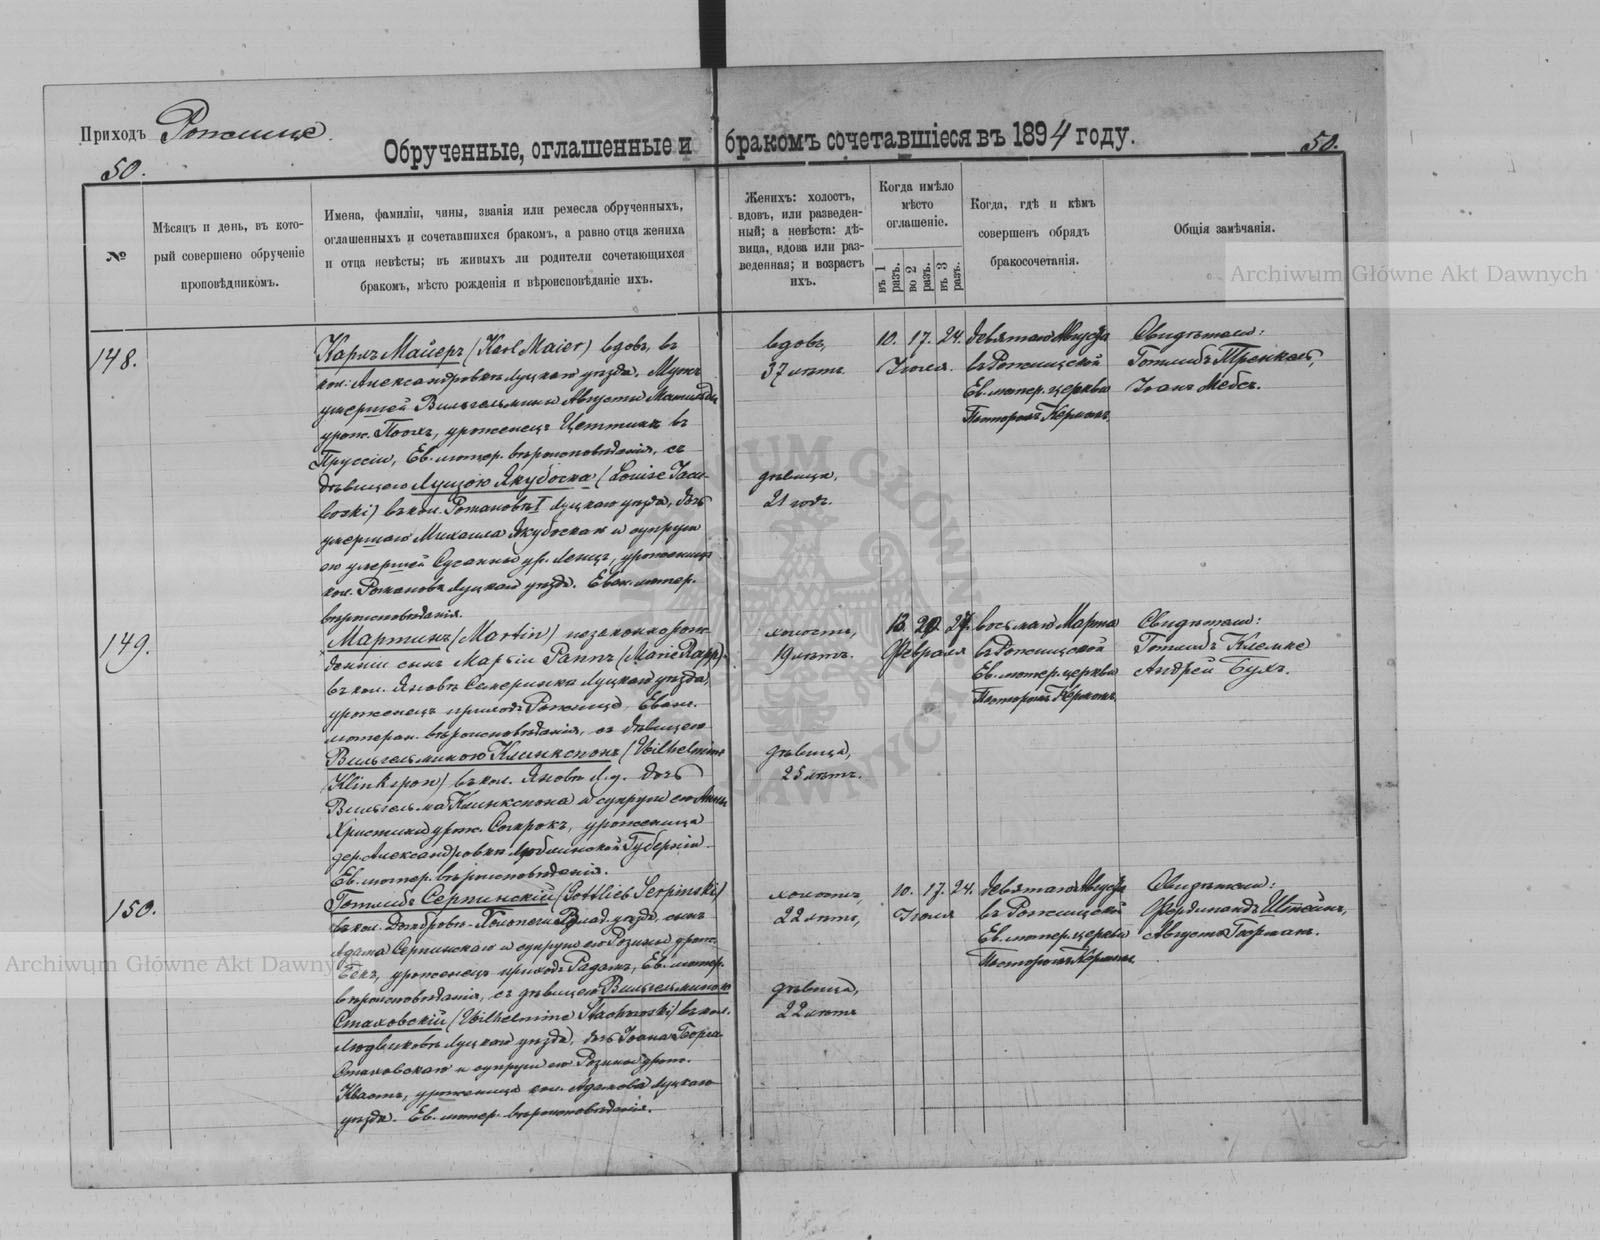 Приходъ Рожище.
50.
Обрученные, оглашенные и бракомъ сочетавшіеся въ 1894 году.
50.
№
Мѣсяцъ и день, въ кото-
рый совершено обрученіе
проповѣдникомъ.
Имена, фамиліи, чины, званія или ремесла обрученныхъ,
оглашенныхъ и сочетавшихся бракомъ, а равно отца жениха
и отца невѣсты; въ живыхъ ли родители сочетающихся
бракомъ, мѣсто рожденія и вѣроисповѣданіе ихъ.
Женихъ: холостъ,
вдовъ, или разведен-
ный; а невѣста: дѣ-
вица, вдова или раз-
веденная; и возрастъ
ихъ.
Когда имѣло
мѣсто
оглашеніе.
въ 1
разъ.
во 2
разъ.
въ 3
разъ.
Когда, гдѣ и кѣмъ
совершенъ обрядъ
бракосочетанія.
Общія замѣчанія.
148.
Карлъ Майеръ (Karl Maier) вдовъ, въ
кол. Александровкѣ Луцкаго уѣзда, Мужъ
умершей Вильгельмины Августы Матильды
урож. уроженецъ въ
Пруссіи, Ев. лютер. вѣроисповѣданія, съ
дѣвицею Луизою Якубоска (Louise Jacu-
boski) въ кол. Рожановкѣ I Луцкаго уѣзда, дочь
умершаго Михаила Якубоскаго и супруги
его умершей Сусанны ур. Ленцъ, уроженица
кол. Луцкаго уѣзда. Еван. лютер.
вѣроисповѣданія.
вдовъ,
37 лѣтъ
дѣвица,
21 годъ.
10. 17. 24.
Іюля.
девятаго Августа
въ Рожищской
Ев. лютер. церкви
Пасторомъ Керномъ.
Свидѣтели:
Готлибъ Тренкель,
Іоганъ Мебсъ.
149.
Мартинъ (Martin) незаконнорож-
денный сынъ Маріи Раппъ (Marie Rapp),
въ кол. Яновкѣ Луцкаго уѣзда,
уроженецъ прихода Рожище, Еван.
лютеран. вѣроисповѣданія, съ дѣвицею
Вильгельминою Клинкспонъ (Wilhelmine
Klinkspon) въ кол. Яновкѣ Л. у. дочь
Вильгельма Клинкспона и супруги его Анны
Христины урож. уроженица
дер. Александровки Люблинской Губерніи
Ев. лютер. вѣроисповѣданія.
холостъ,
19 лѣтъ.
дѣвица,
25 лѣтъ.
13. 20. 27.
Февраля
восьмаго Марта
въ Рожищской
Ев. лютер. церкви
Пасторомъ Керномъ.
Свидѣтели:
Готлибъ Клемке
Андрей Бухъ.
150.
Готлибъ Серпинскій (Gottlieb Serpinski)
въ кол. Влад. уѣзда, сынъ
Адама Серпинскаго и супруги его Розины урож.
Бекъ, уроженецъ прихода Радомъ, Ев. лютер.
вѣроисповѣданія, съ дѣвицею Вильгельминою
Стаховскій (Wilhelmine Stachowski) въ кол.
Людвиковкѣ Луцкаго уѣзда, дочь Іоана Георга
Стаховскаго и супруги его Розины урож.
Квастъ, уроженица кол. Адамова Луцкаго
уѣзда. Ев. лютер. вѣроисповѣданія.
холостъ,
22 лѣтъ,
дѣвица,
22 лѣтъ
10. 17. 24.
Іюля
девятаго Августа
въ Рожищской
Ев. лютер. церкви
Пасторомъ Керномъ.
Свидѣтели:
Фердинандъ Штейнъ,
Августъ Германъ.
Archiwum Główne Akt Dawnych
Archiwum Główne Akt Dawnych